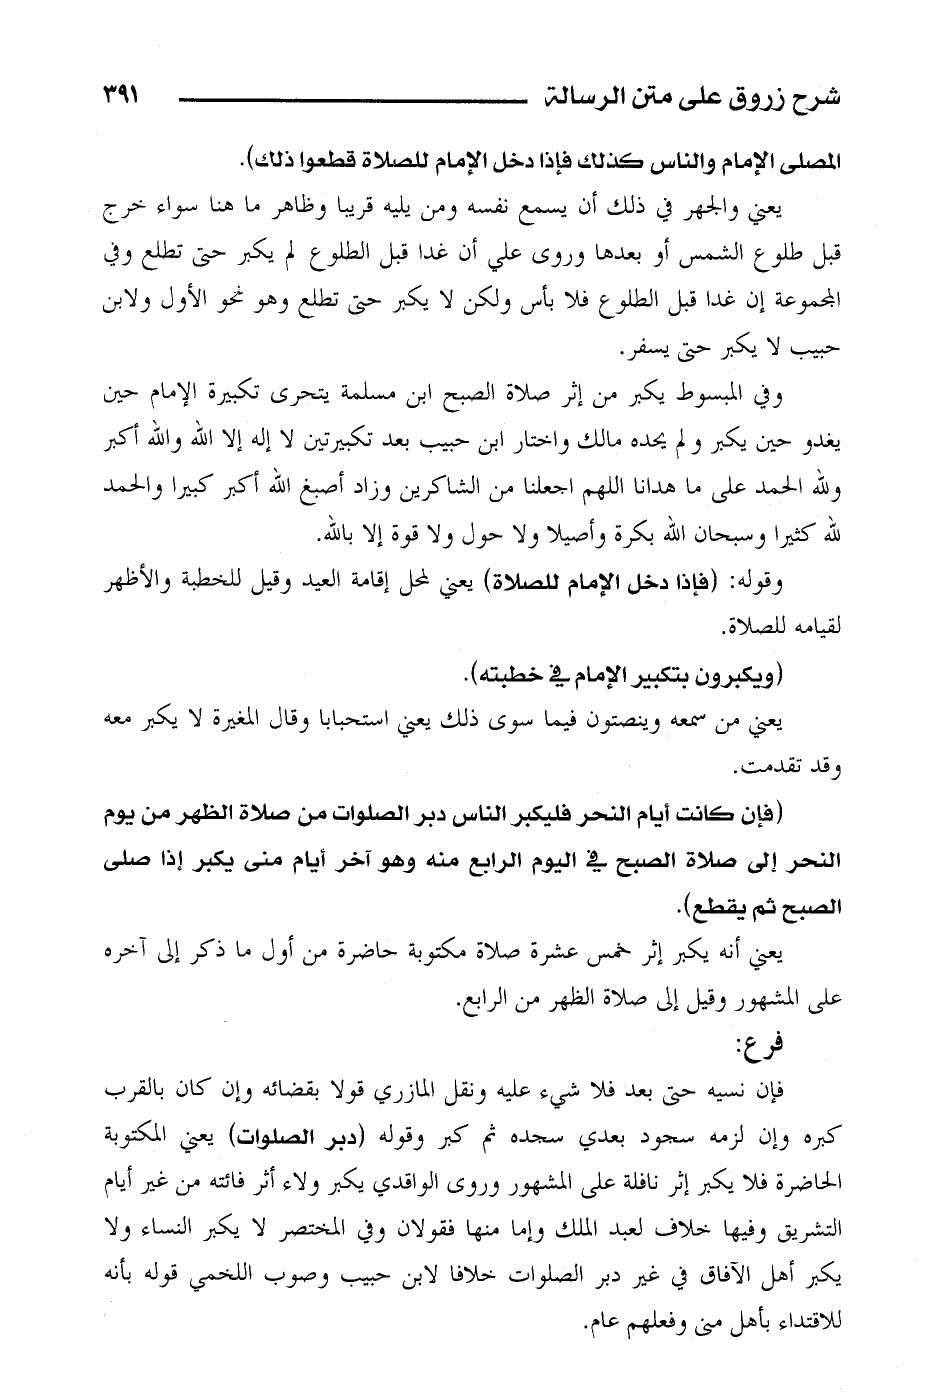 شرح زروق على متن الرسالة ٣٩١
المصلى الإمام والناس كذلك فإذا دخل الإمام للصلاة قطعوا ذلك).
يعني والجهر في ذلك أن يسمع نفسه ومن يليه قريبا وظاهر ما هنا سواء خرج
قبل طلوع الشمس أو بعدها وروى علي أن غدا قبل الطلوع لم يكبر حتى تطلع وفي
المجموعة إن غدا قبل الطلوع فلا بأس ولكن لا يكبر حتى تطلع وهو نحو الأول ولابن
حبيب لا يكبر حتى يسفر.
وفي المبسوط يكبر من إثر صلاة الصبح ابن مسلمة يتحرى تكبيرة الإمام حين
يغدو حين يكبر و لم يحده مالك واختار ابن حبيب بعد تكبيرتين لا إله إلا الله والله أكبر
ولله الحمد على ما هدانا اللهم اجعلنا من الشاكرين وزاد أصبغ الله أكبر كبيرا والحمد
لله كثيرا وسبحان الله بكرة وأصيلا ولا حول ولا قوة إلا بالله.
وقوله: (فإذا دخل الإمام للصلاة) يعني لمحل إقامة العيد وقيل للخطبة والأظهر
لقيامه للصلاة.
(ويكبرون بتكبير الإمام في خطبته).
يعني من سمعه وينصتون فيما سوى ذلك يعني استحبابا وقال المغيرة لا يكبر معه
وقد تقدمت.
(فإن كانت أيام النحر فليكبر الناس دبر الصلوات من صلاة الظهر من يوم
النحر إلى صلاة الصبح في اليوم الرابع منه وهو آخر أيام منى يكبر إذا صلى
الصبح ثم يقطع).
يعني أنه يكبر إثر خمس عشرة صلاة مكتوبة حاضرة من أول ما ذكر إلى آخره
على المشهور وقيل إلى صلاة الظهر من الرابع.
فرع:
فإن نسيه حتى بعد فلا شيء عليه ونقل المازري قولا بقضائه وإن كان بالقرب
كبره وإن لزمه سجود بعدي سجده ثم كبر وقوله (دبر الصلوات) يعني المكتوبة
الحاضرة فلا يكبر إثر نافلة على المشهور وروى الواقدي يكبر ولاء أثر فائته من غير أيام
التشريق وفيها خلاف لعبد الملك وإما منها فقولان وفي المختصر لا يكبر النساء ولا
يكبر أهل الآفاق في غير دبر الصلوات خلافا لابن حبيب وصوب اللخمي قوله بأنه
للاقتداء بأهل منى وفعلهم عام.